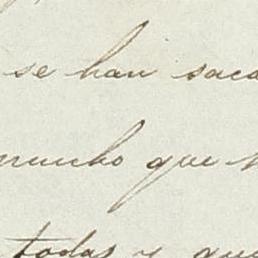 se han saca
muncho que
todas y que